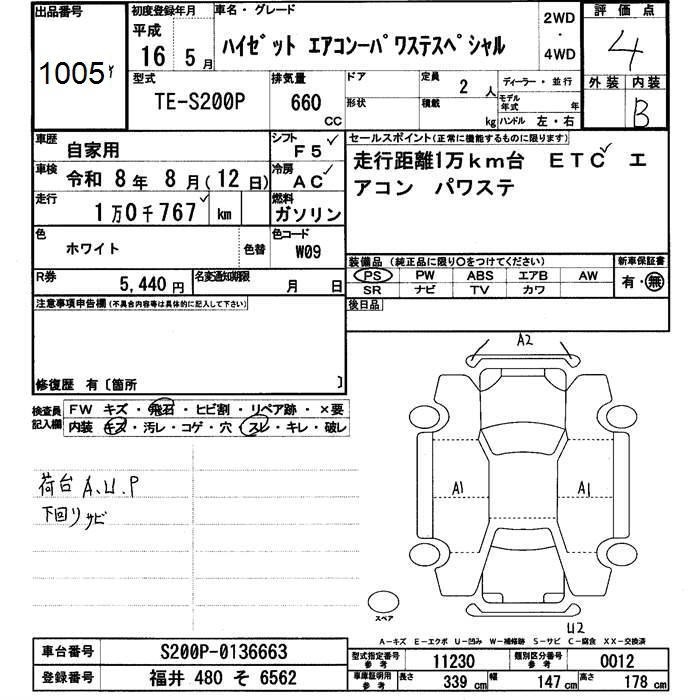 出品番号 初度登録年月 車名・グレード 2WD・4WD 評価点
1005Y 平成16年5月 ハイゼット エアコンーパワステスペシャル 4
型式 排気量 ドア 定員 2人 ディーラー・並行 外装 内装
TE-S200P 660CC 形状 積載 kg モデル年式 年 ハンドル 左・右 B
車歴 自家用 シフト F5
車検 令和 8年 8月(12日) 冷房 AC
走行 1万0千767 km 燃料 ガソリン
色 ホワイト 色替 色コード W09
R券 5,440円 名変通知期限 月 日
注意事項申告欄(不具合内容等は具体的に記入して下さい)
修復歴 有〔箇所 〕
セールスポイント(正常に機能するものに限ります)
走行距離1万km台 ETC エ
アコン パワステ
装備品 (純正品に限り○をつけてください) 新車保証書
PS PW ABS エアB AW 有・無
SR ナビ TV カワ
後日品
検査員記入欄 FW キズ・飛石・ヒビ割・リペア跡・×要
内装 キズ・汚レ・コゲ・穴・スレ・キレ・破レ
荷台 A.U.P
下回リサビ
A2
A1 A1
U2
スペア
A-キズ E-エクボ U-凹み W-補修跡 S-サビ C-腐食 XX-交換済
車台番号 S200P-0136663
登録番号 福井 480 そ 6562
型式指定番号参考 11230 類別区分番号参考 0012
車庫証明用参考 長さ 339cm 幅 147cm 高さ 178cm